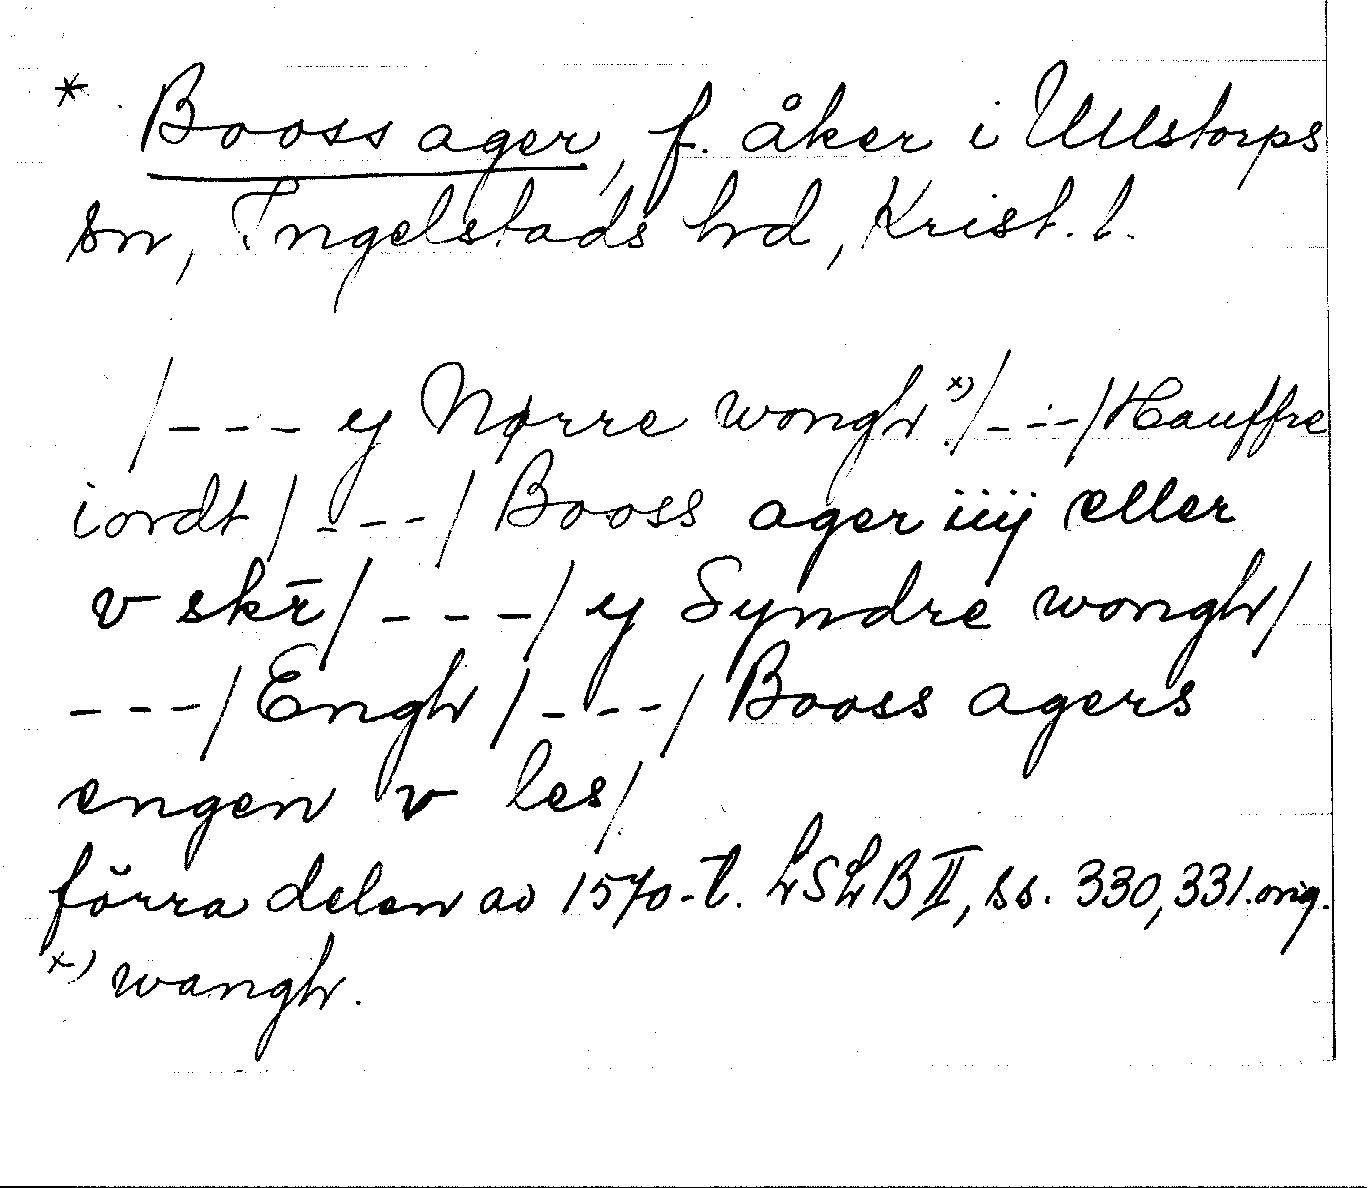 * Booss ager, f. åker i Ullstorps
sn, Ingelstads hd, Krist. l.
/--- ij Nørre wongh x) /---/ Hauffre
iordt /---/ Booss ager iiij eller
v skr̄ /---/ ij Syndre wongh /
---/ Engh /---/ Booss agers
engen v les /
förra delen av 1570-t. LSLB II, ss. 330, 331. orig.
x) wangh.